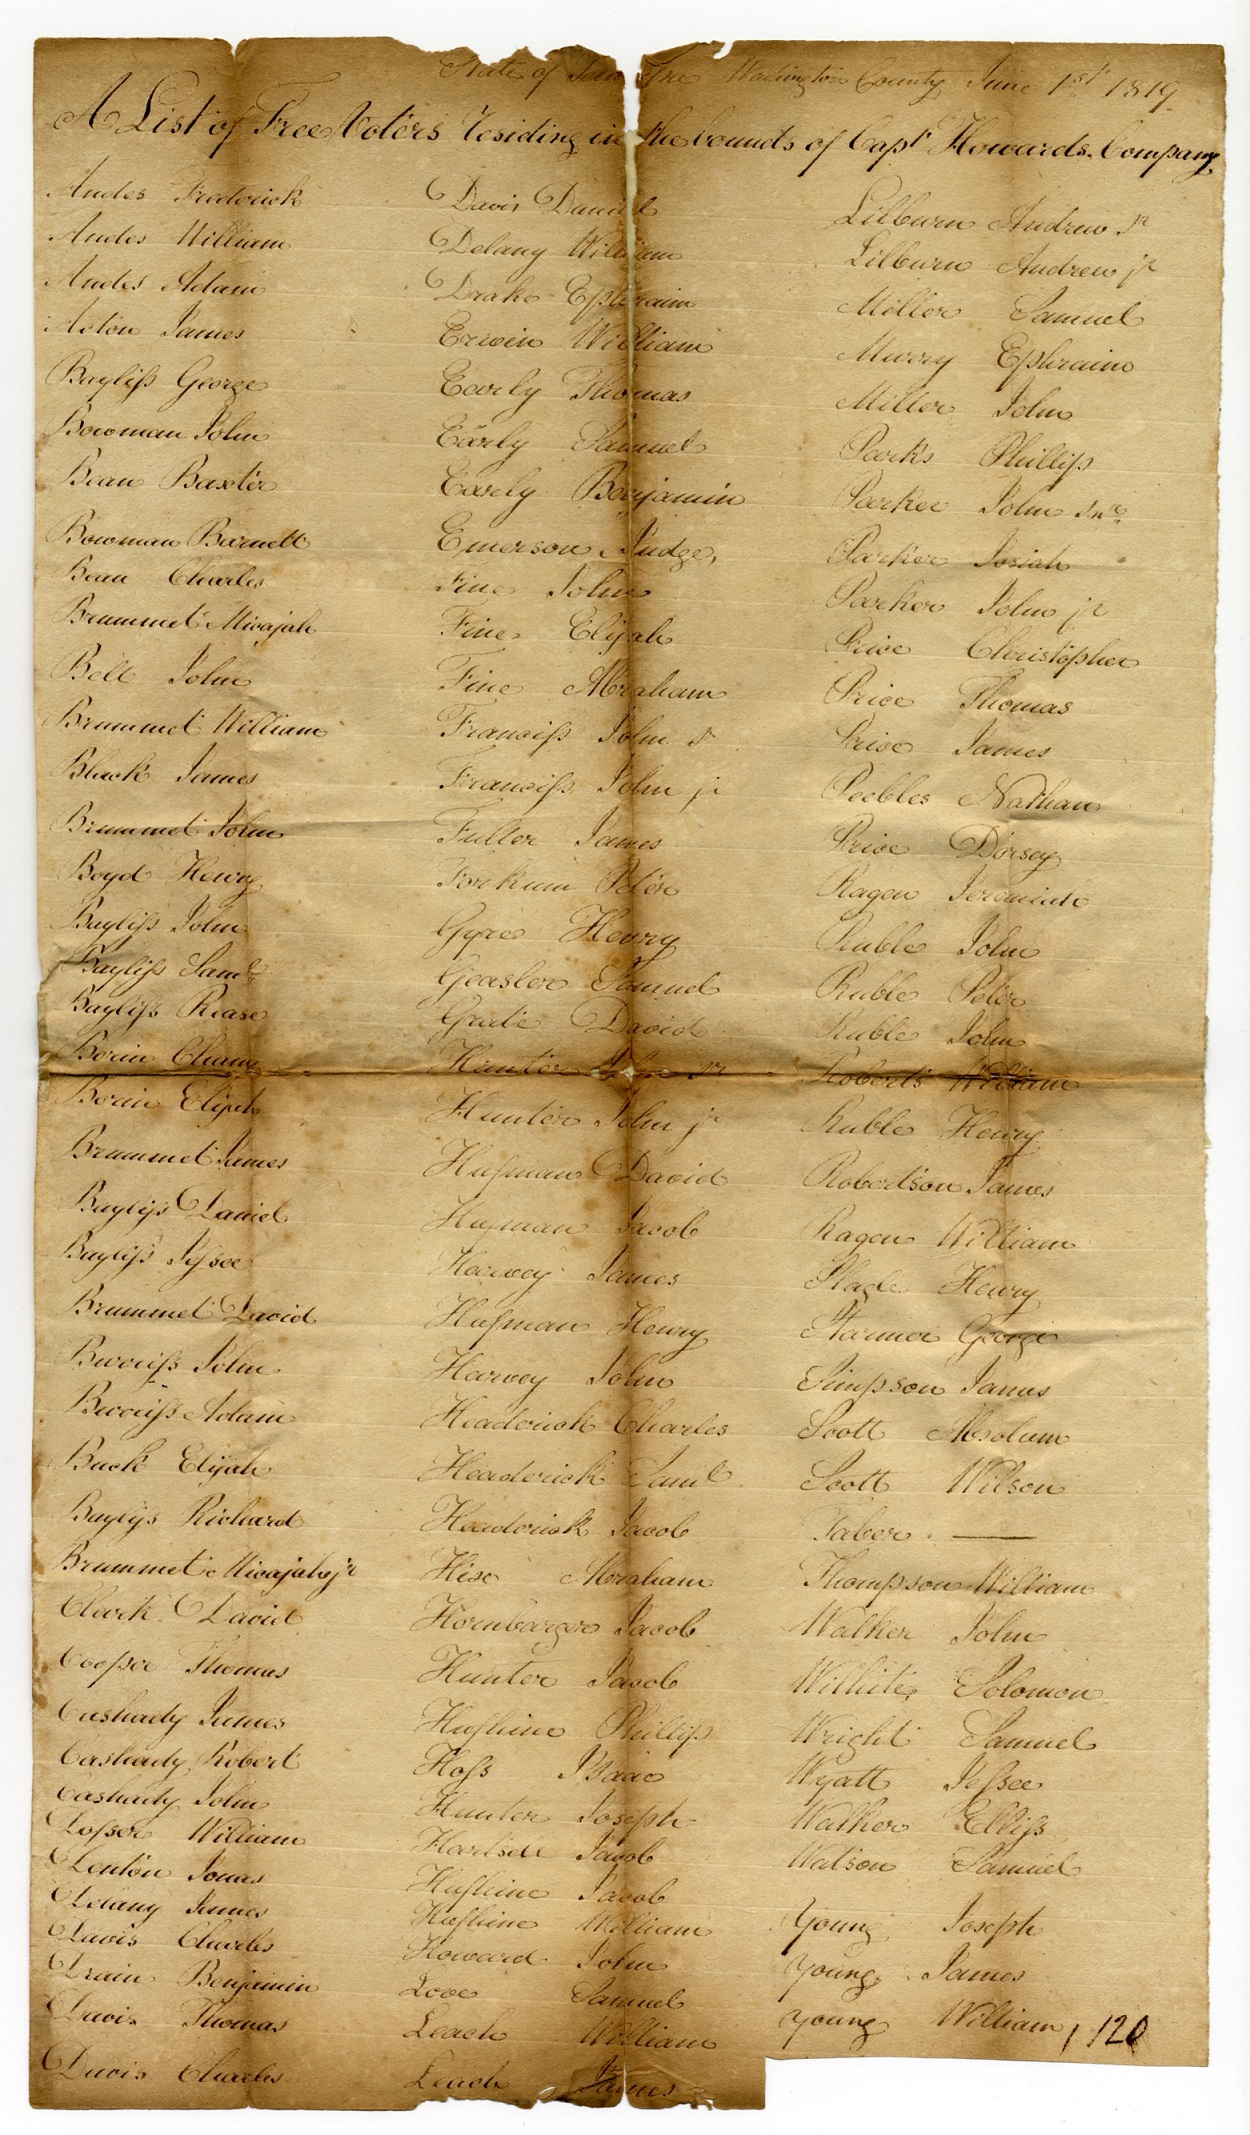 State of Tennessee Washington County June 1st 1819
A List of Free Voters residing in the bounds of Capt Howards Company
Andes Frederick
Andes William
Andes Adam
Acton James
Bayliss George
Bowman John
Bean Baxter
Bowman Barnett
Bean Charles
Brummet Micajah
Bell John
Brummet William
Black James
Brummet John
Boyd Henry
Bayliss John
Bayliss Saml
Bayliss Rease
Borin Chany
Borin Elijah
Brummet James
Bayliss Daniel
Bayliss Jessee
Brummet David
John
Adam
Buck Elijah
Bayliss Richard
Brummet Micajah jr
Clark David
Cooper Thomas
Cashady James
Cashady Robert
Cashady John
William
Denton Jonas
Delany James
Davis Charles
Drain Benjamin
Davis Thomas
Davis Charles
Davis Daniel
Delany William
Drake Ephraim
Erwin William
Early Thomas
Early Samuel
Early Benjamin
Emerson Judge,
Fine John
Fine Elijah
Fine Abraham
Franciss John sr
Franciss John jr
Fuller James
Forkum Peter
Gyre Henry
Geasler Samuel
David
Hunter John sr
Hunter John jr
Hufman David
Hufman Jacob
Harvey James
Hufman Henry
Harvey John
Headerick Charles
Headerick Saml
Headerick Jacob
Hise Abraham
Hornbarger Jacob
Hunter Jacob
Hufhine Phillip
Hoss Isaac
Hunter Joseph
Jacob
Hufhine Jacob
Hufhine William
Howard John
Love Samuel
Leach William
Leach James
Lilburn Andrew sr
Lilburn Andrew jr
Miller Samuel
Murry Ephraim
Miller John
Parks Phillip
Parker John snr
Parker Josiah
Parker John jr
Price Christopher
Price Thomas
Price James
Peebles Nathan
Price Dorsey
Ragen Jeremiah
Ruble John
Ruble Peter
Ruble John
Roberts William
Ruble Henry
Robertson James
Ragen William
Slagle Henry
Starmer George
Simpson James
Scott Absolum
Scott Wilson
Taber ——
Thompson William
Walker John
Willhite Solomon
Wright Samuel
Wyatt Jessee
Walker Elliss
Watson Samuel
Young Joseph
Young James
Young William, 120